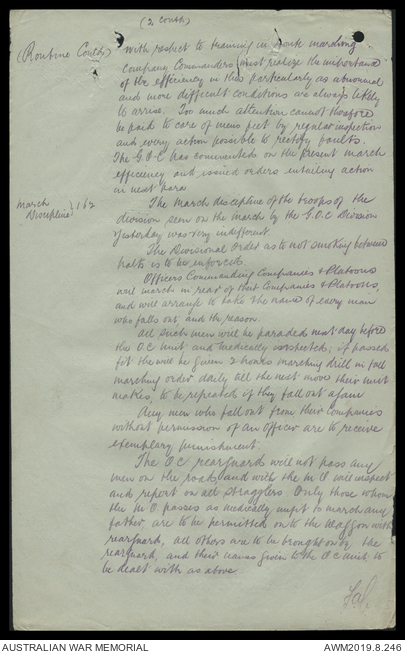 (2 contd)
(Routine Contd) With respect to training in route marching
Company Commanders must realize the importance
of the efficiency in this particularly as abnormal
and more difficult conditions are always likely
to arise. Too much attention cannot therefore
be paid to care of mens feet by regular inspections
and every action possible to rectify faults.
The G.O.C has commented on the present march
efficiency and issued orders intailing action
in next para
March Discipline } 182 The March discipline of the troops of the
division, seen on the march by the G.O.C Division
yesterday was very indifferent.
The Divisional order as to not smoking between
halts is to be enforced.
Officers Commanding Companies & Platoons
will march in rear of their Companies & Platoons,
and will arrange to take the name of every man
who falls out and the reason.
All such men will be paraded next day before
the O.C unit and medically inspected; if passed
fit the will be given 2 hours marching drill in full
marching order daily till the next move their unit
makes, to be repeated if they fall out again
Any men who fall out from their Companies
without permission of an Officer are to receive
exemplary punishment.
The O.C rearguard will not pass any
men on the road and with the M.O will inspect
and report on all stragglers Only those whom
the M.O passes as medically unfit to march any
father, are to be permitted on to the waggon with
rearguard, all others are to be brought on by the
rearguard, and their names given to the O.C unit to
be dealt with as above.
AUSTRALIAN WAR MEMORIAL
AWM2019.8.246